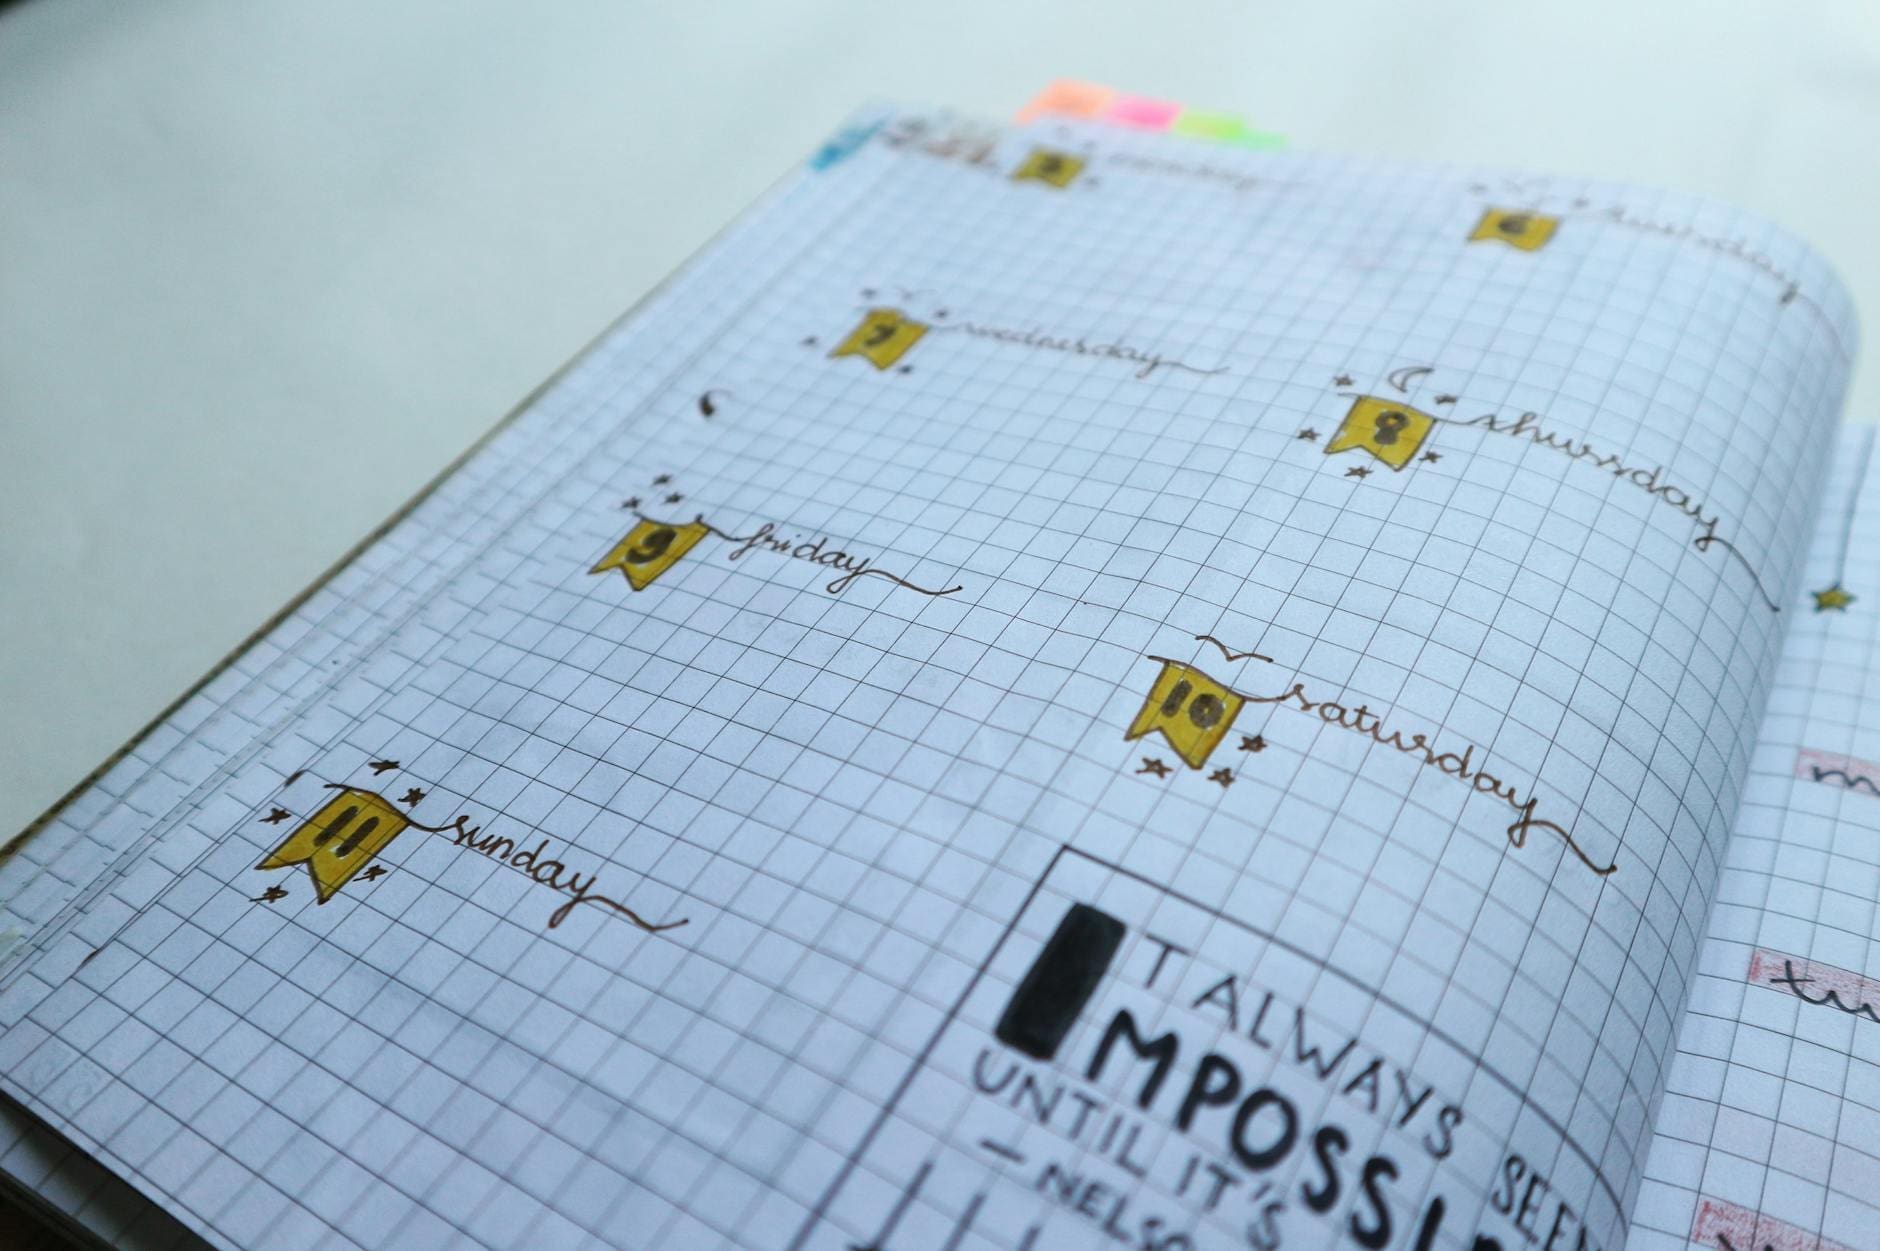 5 monday
6 tuesday
7 wednesday
8 thursday
9 friday
10 saturday
11 sunday
IT ALWAYS SEEM
IMPOSSI
UNTIL IT'S
- NELSO
m
tu